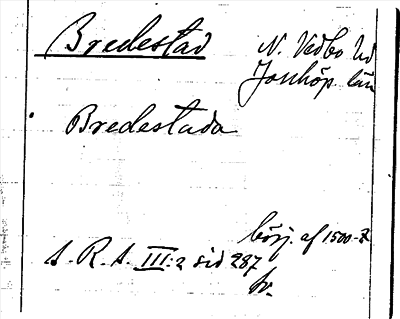 Bredestad
N. Vedbo hd
Jonköp. län
Bredestada
börj. af 1500-t
S. R. A. III:2 sid 287
tr.